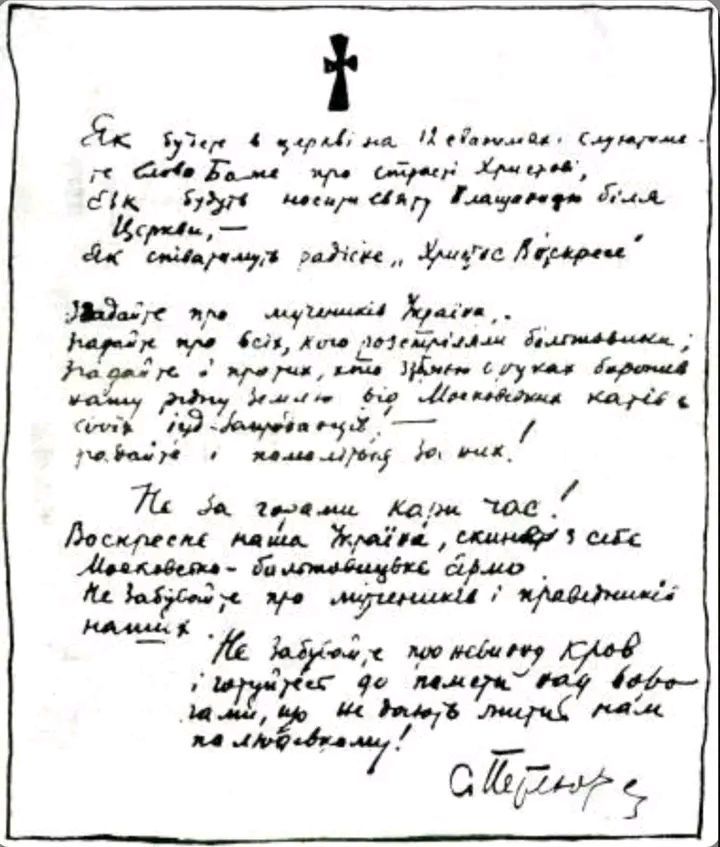 Як будете в церкві на 12 євангилях слухатиме-
те Слово Боже про страсті Христові,
Як будуть носити святу Плащаницю біля
Церкви, —
Як співатимуть радісне „Христос Воскресе"
Згадайте про мучеників України,
Згадайте про всіх, кого розстріляли більшовики;
Згадайте і про тих, хто зі зброєю в руках боронив
нашу рідну Землю від Московських катів і
своїх іуд-запроданців, —
згадайте і помоліться за них!
Не за горами наш час!
Воскресне наша Україна, скине з себе
Московсько-большовицьке ярмо
Не забувайте про мучеників і праведників
наших.
Не забувайте про невинну кров
і готуйтесь до помсти над воро-
гами, що не дають жити нам
по людському!
С. Петлюра